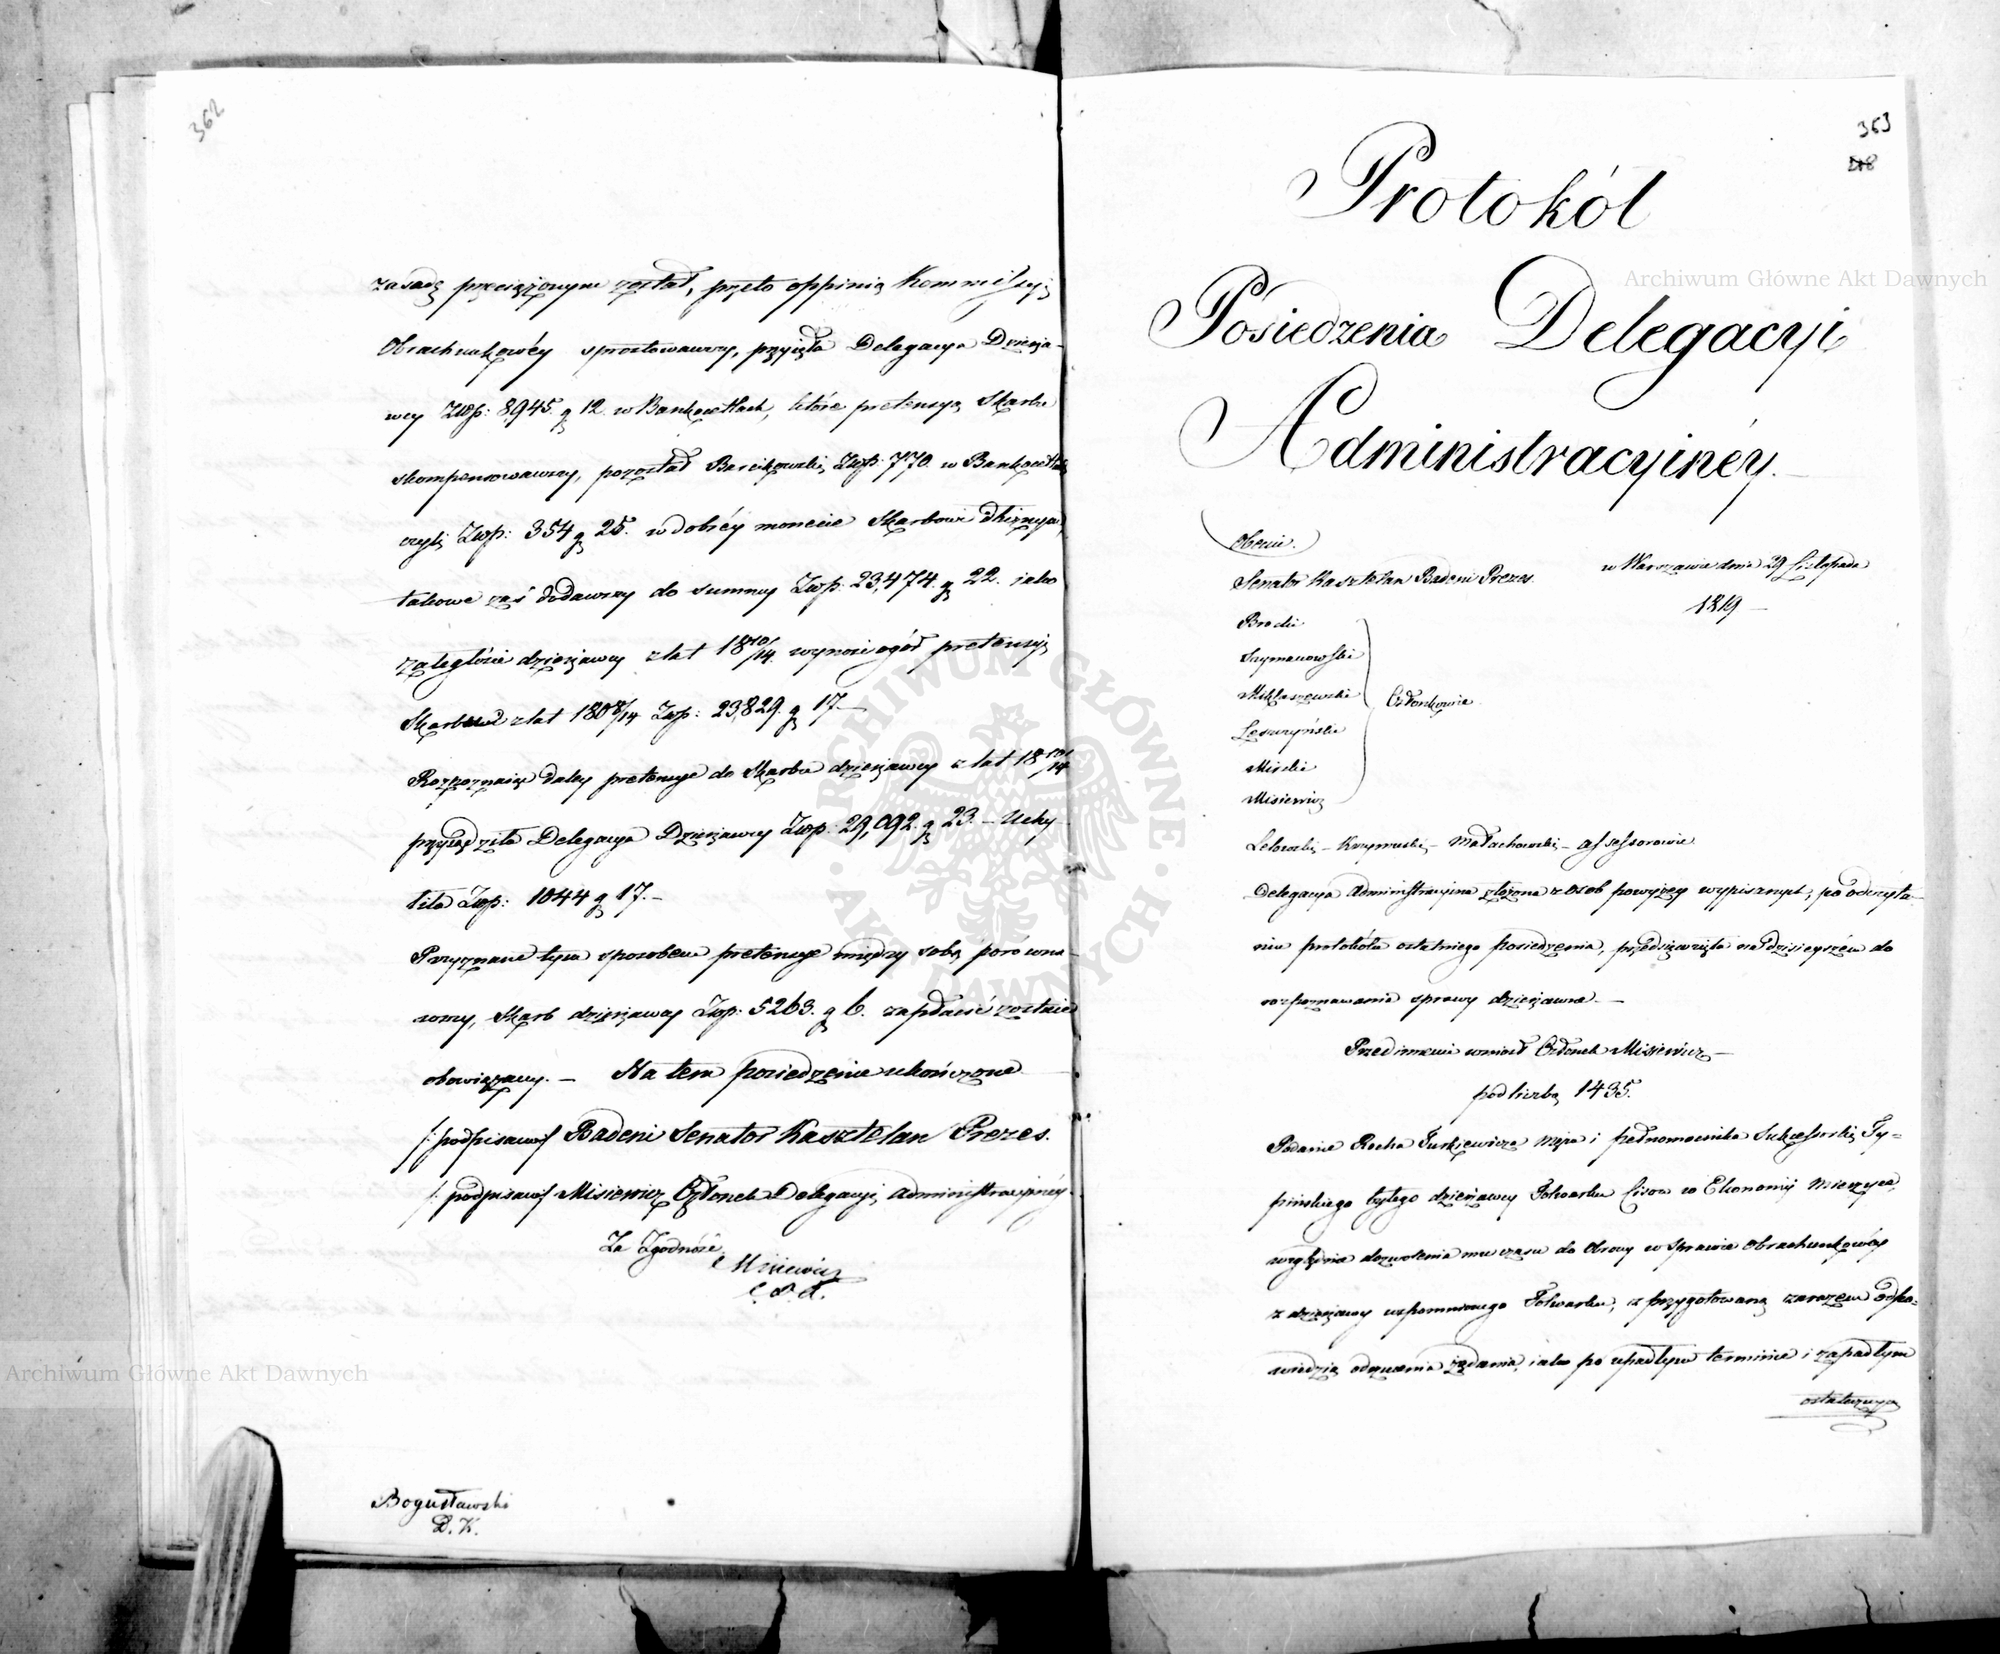 362
zasadę przeciążonym został, przeto oppinią Kommissyi
Obrachunkowéy sprostowawszy, przyięła Delegacya Dzierża-
wcy Złłp: 8,945. g 12. w Bankocetlach, które pretensyą Skarbu
skompensowawszy, pozostał Barcikowski Złłp: 770. w Bankocetlach
czyli Złłp: 354 g 25. w dobréy monecie Skarbowi dłużnym,
takowe zaś dodawszy do summy Złłp: 23,474. g 22. iako
zaległości dzierżawy z lat 1810/14. wynosi ogół pretensyi
Skarbu z lat 1808/14 Złłp: 23,829. g 17.—
Rozpoznaiąc daley pretensye do Skarbu dzierżawcy z lat 1810/14
przysądziła Delegacya Dzierżawcy Złłp: 29,092. g 23. — Uchy-
liła Złłp: 1044 g 17.—
Przyznane tym sposobem pretensye między sobą porówna-
wszy, Skarb dzierżawcy Złłp: 5263. g 6. zapłacić zostaie
obowiązany. — Na tem posiedzenie ukończone
/: podpisano/ Badeni Senator Kasztelan Prezes.
/: podpisano/ Misiewicz Członek Delegacyi Administracyinéy.
Za Zgodność
Misiewicz
C. D. A.
Bogusławski
D. K.
363
Protokół
Posiedzenia Delegacyi
Administracyinéy.
Obecni.
w Warszawie dnia 29 Listopada
1819
Senator Kasztelan Badeni Prezes.
Brocki
Szymanowski
Miklaszewski
Członkowie
Leszczyński
Mirski
Misiewicz
Lelowski — Krzymuski — Małachowski — Assessorowie
Delegacya Administracyina złożona z osób powyżey wypisanych, po odczyta-
niu protokółu ostatniego posiedzenia, przedsięwzięła na dzisieyszém do
rozpoznawania sprawy dzierżawne. —
Przedmiani wniósł Członek Misiewicz —
pod liczbą 1435.
Podanie Rocha Turkiewicza męża i pełnomocnika Sukcessorki Ty-
pińskiego byłego dzierżawcy Folwarku Cisow w Ekonomij Mierzyca,
względnie dozwolenia mu czasu do obrony w sprawie obrachunkowéy
z dzierżawy wspomnionego Folwarku, z przygotowaną zarazem odpo-
wiedzią odrzucenia żądania, iako po upadłym terminie i zapadłym
ostateczny
Archiwum Główne Akt Dawnych
Archiwum Główne Akt Dawnych
ARCHIWUM GŁÓWNE AKT DAWNYCH